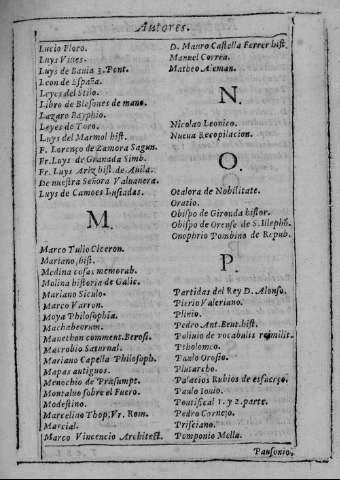 Autores.
Lucio Floro.
Luys Vives.
Luys de Bauia 3. Pont.
Leon de España.
Leyes del Stilo.
Libro de Blesones de mano.
Lazaro Bayphio.
Leyes de Toro.
Luys del Marmol hist.
F. Lorenço de Zamora Sagun.
Fr. Luys de Granada Simb.
Fr. Luys Ariz hist. de Auila.
De nuestra Señora Valuanera.
Luys de Camoes Lusiadas.
M.
Marco Tulio Ciceron.
Mariano, hist.
Medina cosas memorab.
Molina historia de Galic.
Mariano Siculo.
Marco Varron.
Moya Philosophia.
Machabeorum.
Manethon comment. Berosi.
Macrobio Saturnal.
Mariano Capella Philosoph.
Mapas antiguos.
Menochio de Præsumpt.
Montaluo sobre el Fuero.
Modestino.
Marcelino Thop. Vr. Rom.
Marcial.
Marco Vincencio Architect.
D. Mauro Castella Ferrer hist.
Manuel Correa.
Matheo Aleman.
N.
Nicolao Leonico.
Nueua Recopilacion.
O.
Otalora de Nobilitate.
Oratio.
Obispo de Girouda histor.
Obispo de Orense de S. Illephõ.
Onophrio Pombino de Repub.
P.
Partidas del Rey D. Alonso.
Pierio Valeriano.
Plinio.
Pedro Ant. Beut. hist.
Poliuio de vocabulis reimilit.
Ptholomeo.
Paulo Orosio.
Plutarcho.
Palacios Rubios de esfuerço.
Paulo Iouio.
Pontifical 1. y 2. parte.
Pedro Cornejo.
Prisciano.
Pomponio Mella.
Pausonio,